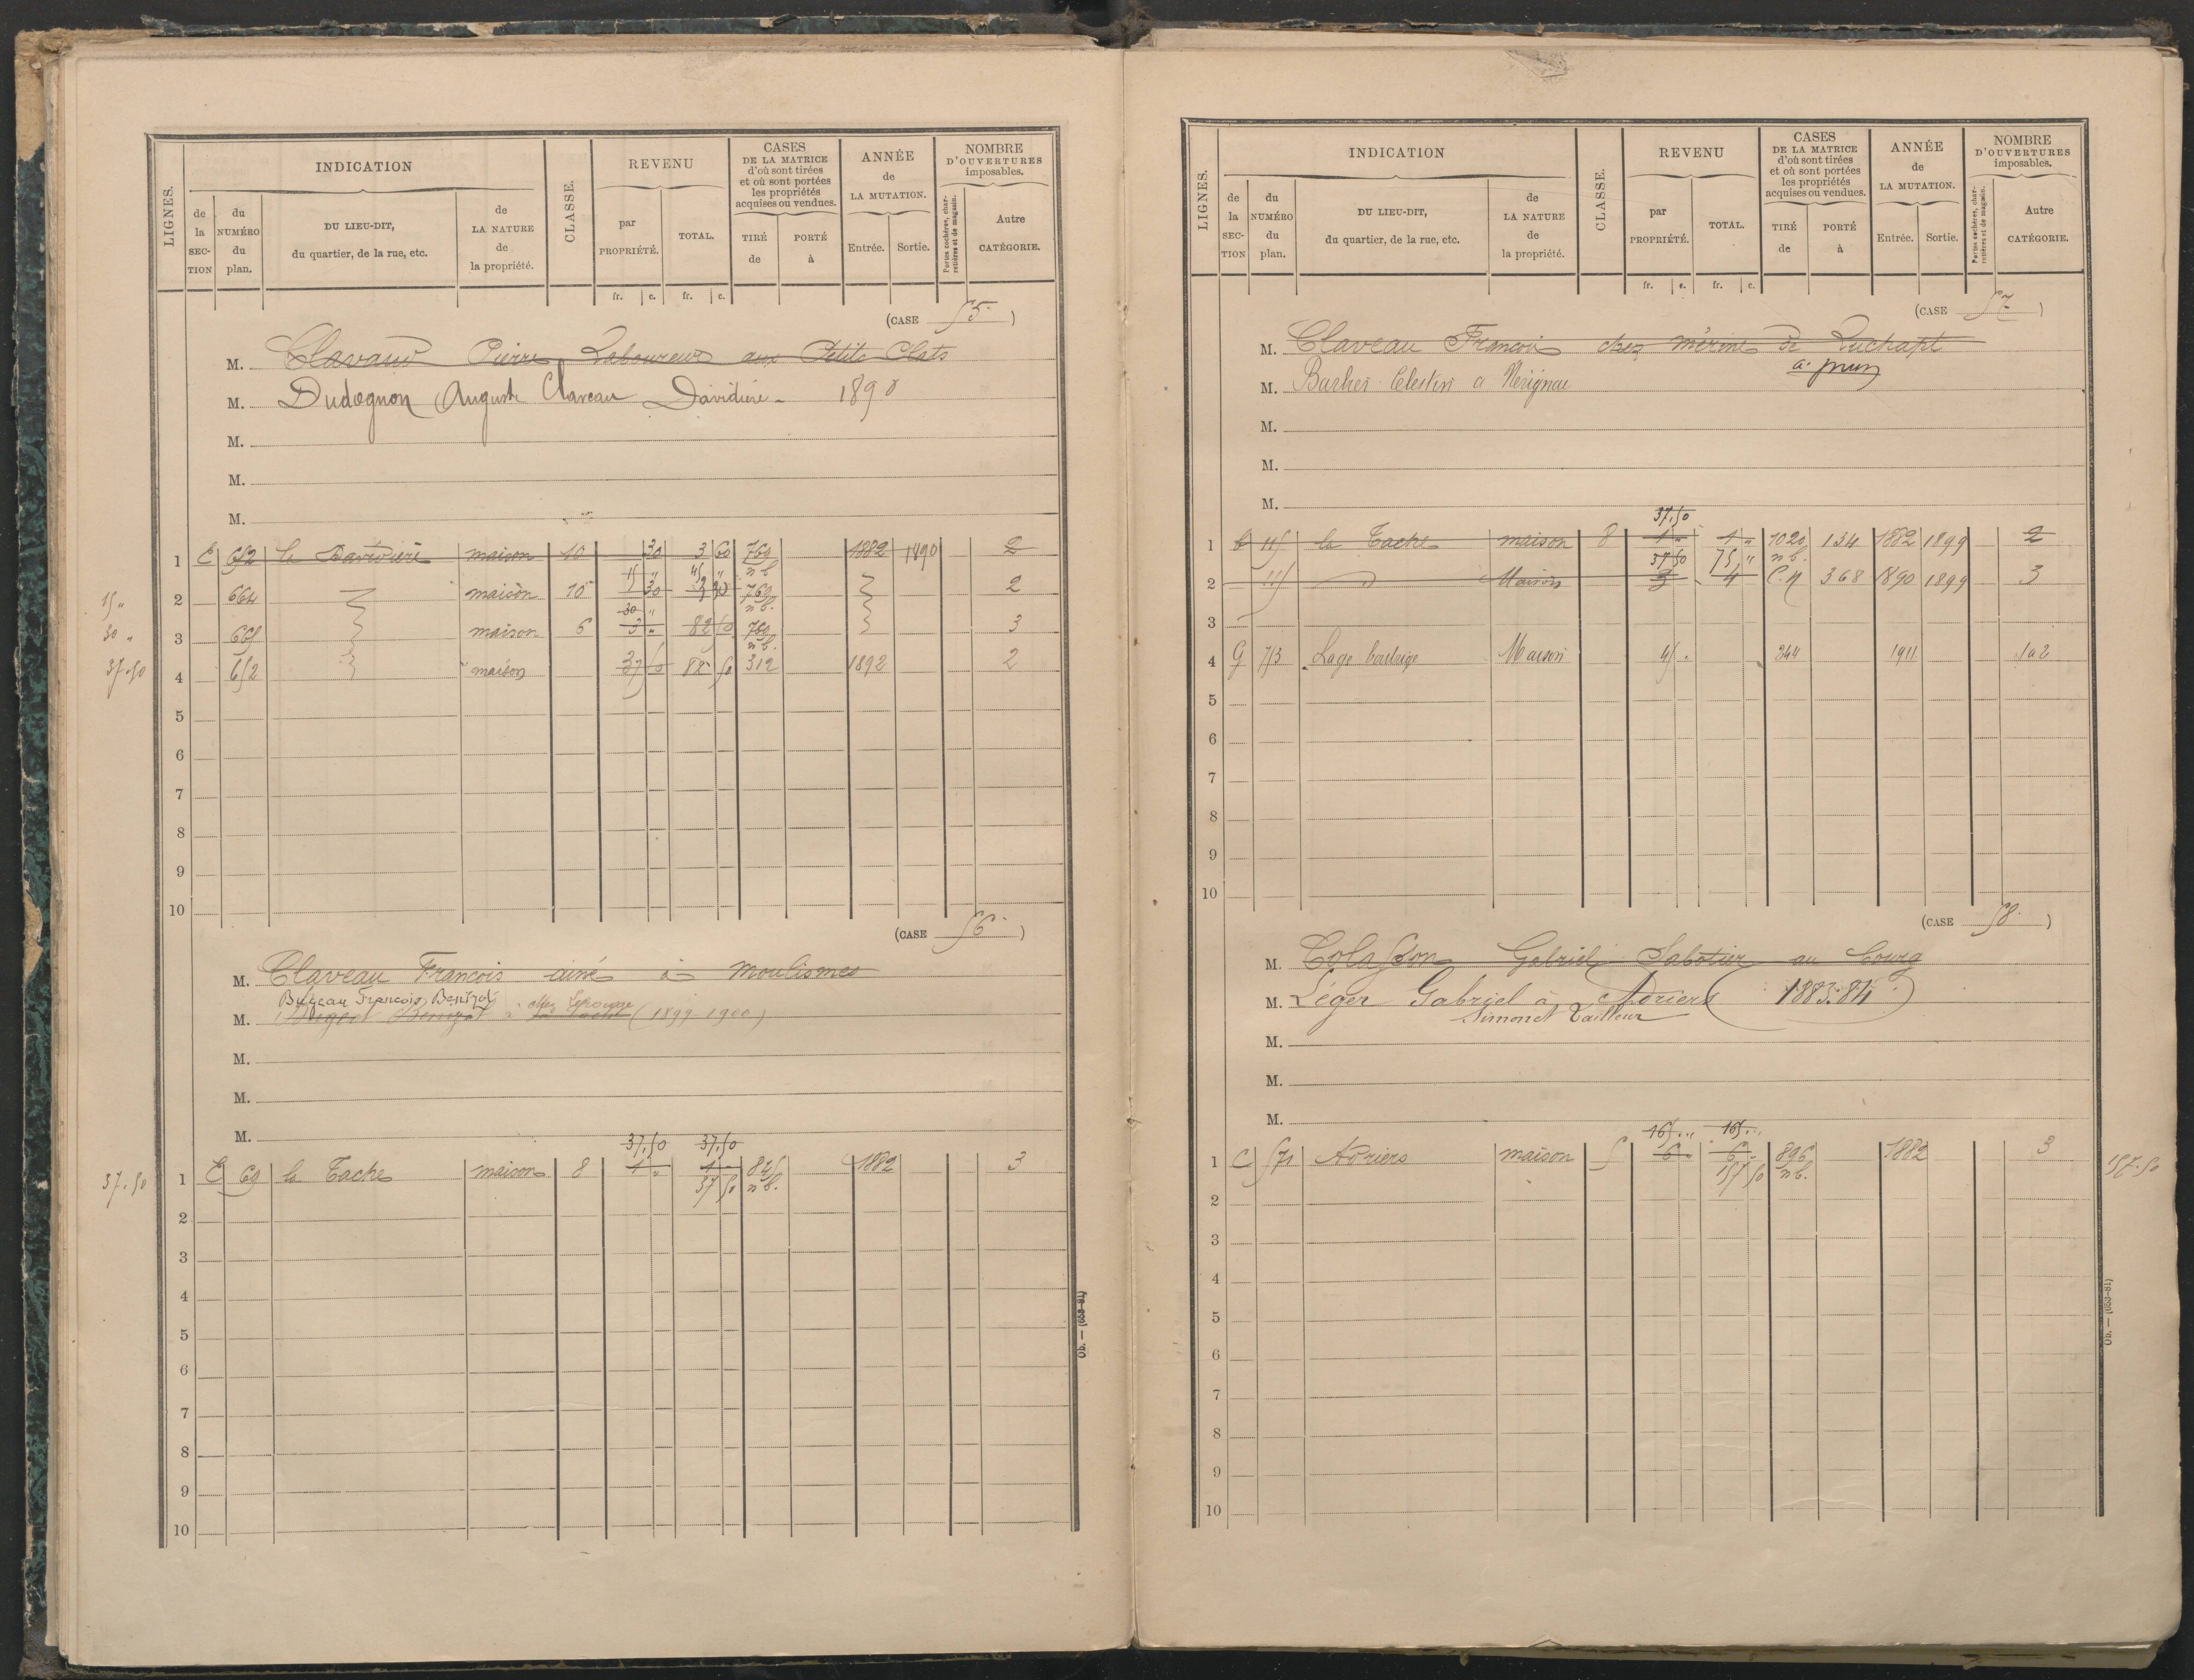 LIGNES.
INDICATION
de la SECTION
du NUMÉRO du plan.
DU LIEU-DIT, du quartier, de la rue, etc.
de LA NATURE de la propriété.
CLASSE.
REVENU
par PROPRIÉTÉ.
TOTAL.
fr. c. fr. c.
CASES DE LA MATRICE d'où sont tirées et où sont portées les propriétés acquises ou vendues.
TIRÉ de
PORTÉ à
ANNÉE de LA MUTATION.
Entrée. Sortie.
NOMBRE D'OUVERTURES imposables.
Portes cochères, charretières et de magasin.
Autre CATÉGORIE.
(CASE 55)
M. Clavaud Pierre Laboureur aux Petits Plats
M. Dudognon Auguste Claveau Davidière 1890
M.
M.
M.
1 E 652 la Davidière maison 10 30 3 60 760 1882 1890 2
15 " 45 " n b
15 " 2 664 maison 10 1 30 760 2
30 " n b.
30 " 3 665 maison 6 3 " 82 50 760 3
n b.
37.50 4 652 maison 37 50 82 50 312 1892 2
5
6
7
8
9
10
(CASE 56)
M. Claveau François ainé à Moulismes
Bujeau François
M. (1899-1900)
M.
M.
M.
37,50 37,50
37.50 1 E 69 la Tache maison 8 1 " 1 " 845 1882 3
37 50 n b.
2
3
4
5
6
7
8
9
10
Ob. — (653-81)
LIGNES.
INDICATION
de la SECTION
du NUMÉRO du plan.
DU LIEU-DIT, du quartier, de la rue, etc.
de LA NATURE de la propriété.
CLASSE.
REVENU
par PROPRIÉTÉ.
TOTAL.
fr. c. fr. c.
CASES DE LA MATRICE d'où sont tirées et où sont portées les propriétés acquises ou vendues.
TIRÉ de
PORTÉ à
ANNÉE de LA MUTATION.
Entrée. Sortie.
NOMBRE D'OUVERTURES imposables.
Portes cochères, charretières et de magasin.
Autre CATÉGORIE.
(CASE 57)
M. Claveau François chez mérine de Luchapt
M. Barbier Célestin à Nérignac
M.
M.
M.
37,50
1 115 la Tache maison 8 1 " 1 " 1020 134 1882 1899 2
37 50 75 " n b.
2 115 d Maison 3 4 C.N 368 1890 1899 3
3
4 G 753 Lage Maison 45 . 244 1911 1 a 2
5
6
7
8
9
10
(CASE 58)
M. Colasson Gabriel Sabotier au bourg
M. Léger Gabriel à Adriers (1883.84)
Simonet Tailleur
M.
M.
M.
165 " 165 "
1 C 571 Adriers maison 5 6 " 6 " 896 1882 3 157.50
157 50 n b.
2
3
4
5
6
7
8
9
10
Ob. — (653-81)